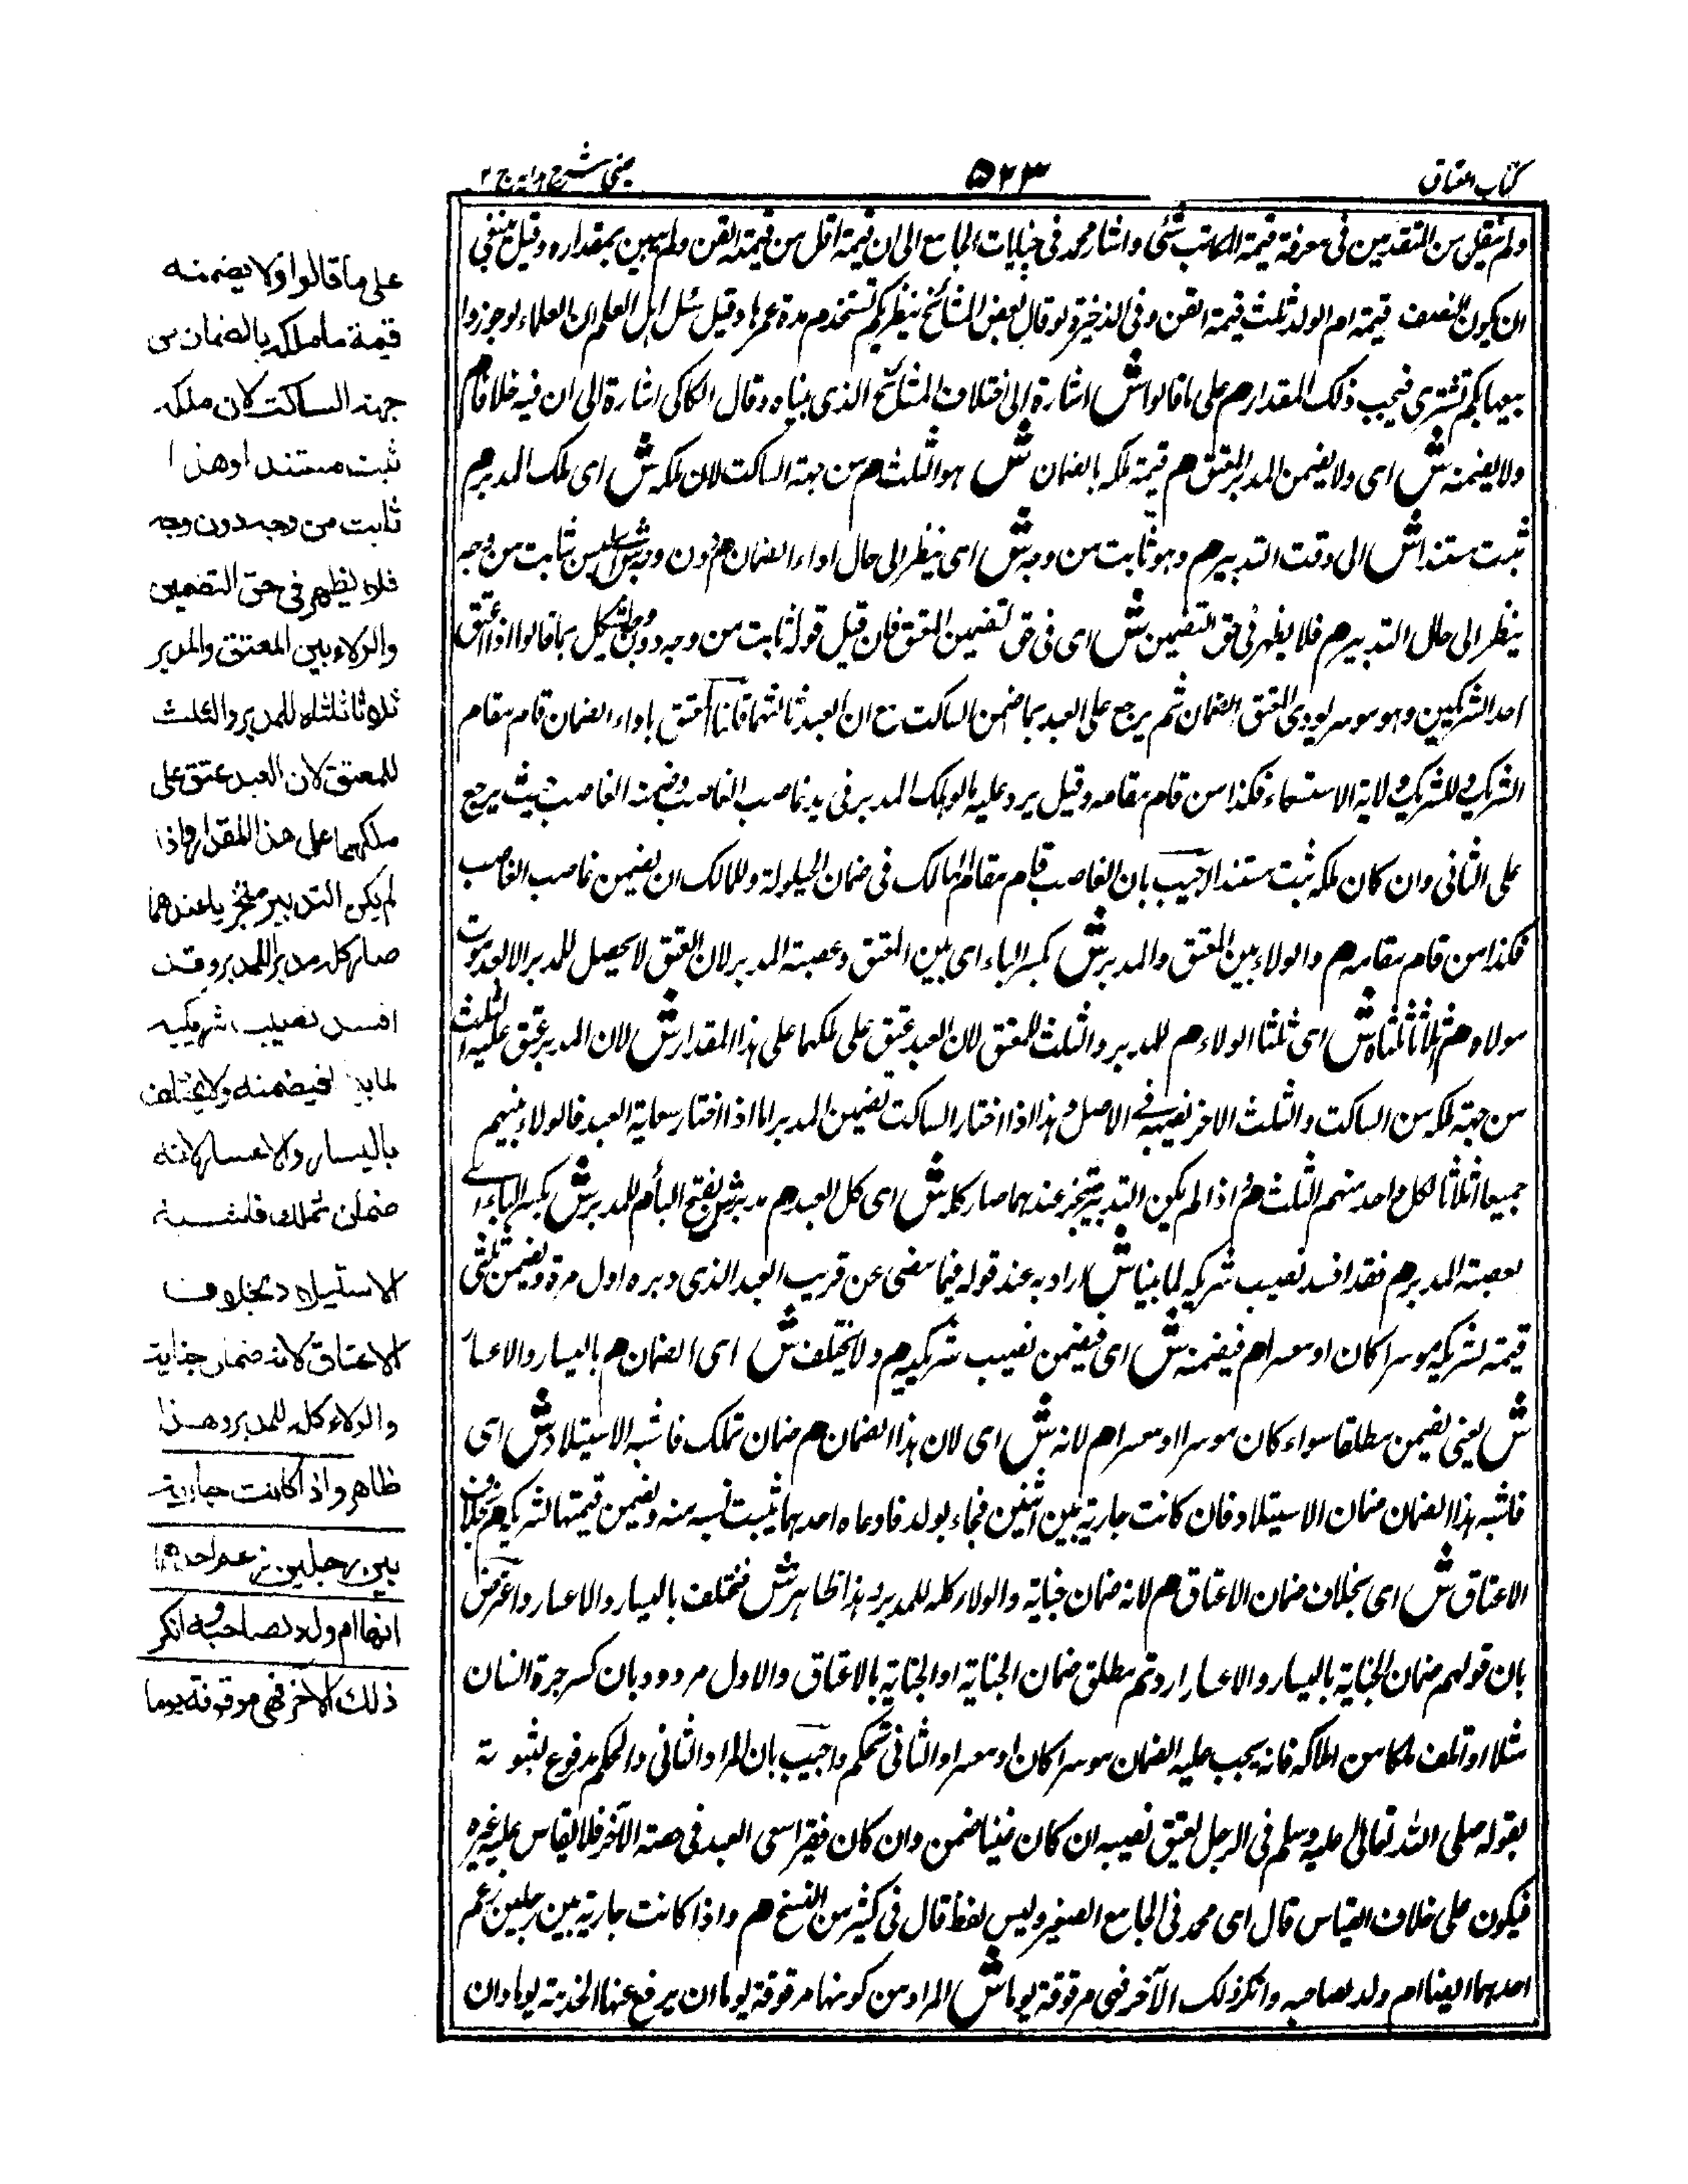 كتاب العتاق
۵۲۳
عينى شرح هدايه ج ۲
ولم ينقل من المتقدمين فى معرفة قيمة المكاتب شئ واشار محمد فى جنايات الجامع الى ان قيمة اقل من قيمة القن ولم يبين بمقداره وقيل ينبغى
ان يكون النصف قيمة ام الولد ثلث قيمة القن وفى الذخيرة لو قال بعض المشائخ ينظر بكم تستخدم مدة عمرها وقيل سئل اهل العلم ان العلماء لو جوزوا
بيعها بكم تشترى فيجب ذلك المقدار م على ما قالوا ش اشارة الى اختلاف المشائخ الذى بيناه وقال الكاكى اشارة الى ان فيه خلافا م
ولا يضمنه ش اى ولا يضمن المدبر المعتق م قيمة ملكه بالضمان ش هو الثلث م من جهة الساكت لان ملكه ش اى ملك المدبر م
ثبت مستندا ش الى وقت التدبير م وهو ثابت من وجه ش اى ينظر الى حال اداء الضمان م دون وجه ش اى ليس بثابت من وجه
ينظر الى حال التدبير م فلا يظهر فى حق التضمين ش اى فى حق تضمين المعتق فان قيل قوله ثابت من وجه دون وجه يشكل بما قالوا اذا اعتق
احد الشريكين وهو موسر يودى المعتق الضمان ثم يرجع على العبد بما ضمن الساكت مع ان العبد ثالثهما قلنا المعتق باداء الضمان قام مقام
الشريك وللشريك ولاية الاستسعاء فكذا من قام مقامه وقيل يرد عليه ما لو هلك المدبر فى يد غاصب الغاصب وضمنه الغاصب حيث يرجع
على الثانى وان كان ملكه ثبت مستندا اجيب بان الغاصب قام مقام المالك فى ضمان الحيلولة وللمالك ان يضمن غاصب الغاصب
فكذا من قام مقامه م والولاء بين المعتق والمدبر ش بكسر الباء اى بين المعتق وعصبة المدبر لان العتق لا يحصل للمدبر الا بعد موت
مولاه م اثلاثا ثلثاه ش اى ثلثا الولاء م للمدبر والثلث للمعتق لان العبد عتق على ملكهما على هذا المقدار ش لان المدبر عتق عليه الثلث
من جهة ملكه من الساكت والثلث الاخر نصيبه فى الاصل وهذا اذا اختار الساكت تضمين المدبر اما اذا اختار سعاية العبد فالولاء بينهم
جميعا اثلاثا لكل واحد منهم الثلث م واذا لم يكن التدبير متجزيا عندهما صار كله ش اى كل العبد م مدبرا ش بفتح الباء م للمدبر ش بكسر الباء اى
لعصبة المدبر م فقد افسد نصيب شريكه لما بينا ش اراد به عند قوله فيما مضى عن قريب العبد الذى دبره اول مرة ويضمن ثلثى
قيمته لشريكه موسرا كان او معسرا م فيضمنه ش اى فيضمن نصيب شريكيه م ولا يختلف ش اى الضمان م باليسار والاعسار
ش يعنى يضمن مطلقا سواء كان موسرا او معسرا م لانه ش اى لان هذا الضمان م ضمان تملك فاشبه الاستيلاد ش اى
فاشبه هذا الضمان ضمان الاستيلاد فان كانت جارية بين اثنين فجاء بولد فادعاه احدهما يثبت نسبه منه ويضمن قيمتها لشريكه م بخلاف
الاعتاق ش اى بخلاف ضمان الاعتاق م لانه ضمان جناية والولاء كله للمدبر وهذا ظاهر ش فيختلف باليسار والاعسار واعترض
بان قولهم ضمان الجناية باليسار والاعسار اردتم مطلق ضمان الجناية او الجناية بالاعتاق والاول مردود بان كسر جرة انسان
مثلا او اتلف ملكا من املاكه فانه يجب عليه الضمان موسرا كان او معسرا والثانى تحكم واجيب بان المراد الثانى والتحكم مدفوع لثبوته
بقوله صلى الله تعالى عليه وسلم فى الرجل يعتق نصيبه ان كان غنيا ضمن وان كان فقيرا سعى العبد فى حصة الآخر فلا يقاس عليه غيره
فيكون على خلاف القياس قال اى محمد فى الجامع الصغير وليس لفظ قال فى كثير من النسخ م واذا كانت جارية بين رجلين زعم
احدهما انها ام ولد لصاحبه وانكر ذلك الآخر فهى موقوفة يوما ش المراد من كونها موقوفة يوما ان يرفع عنها الخدمة يوما وان
على ما قالوا ولا يضمنه
قيمة ما ملكه بالضمان من
جهة الساكت لان ملكه
ثبت مستندا وهذا
ثابت من وجه دون وجه
فلا يظهر فى حق التضمين
والولاء بين المعتق والمدبر
ثلاثا ثلثاه للمدبر والثلث
للمعتق لان العبد عتق على
ملكهما على هذا المقدار واذا
لم يكن التدبير متجزيا عندهما
صار كله مدبرا للمدبر وقد
افسد نصيب شريكيه
لما بينا فيضمنه ولا يختلف
باليسار والاعسار لانه
ضمان تملك فاشبه
الاستيلاد بخلاف
الاعتاق لانه ضمان جناية
والولاء كله للمدبر وهذا
ظاهر واذا كانت جارية
بين رجلين زعم احدهما
انها ام ولد لصاحبه وانكر
ذلك الآخر فهى موقوفة يوما